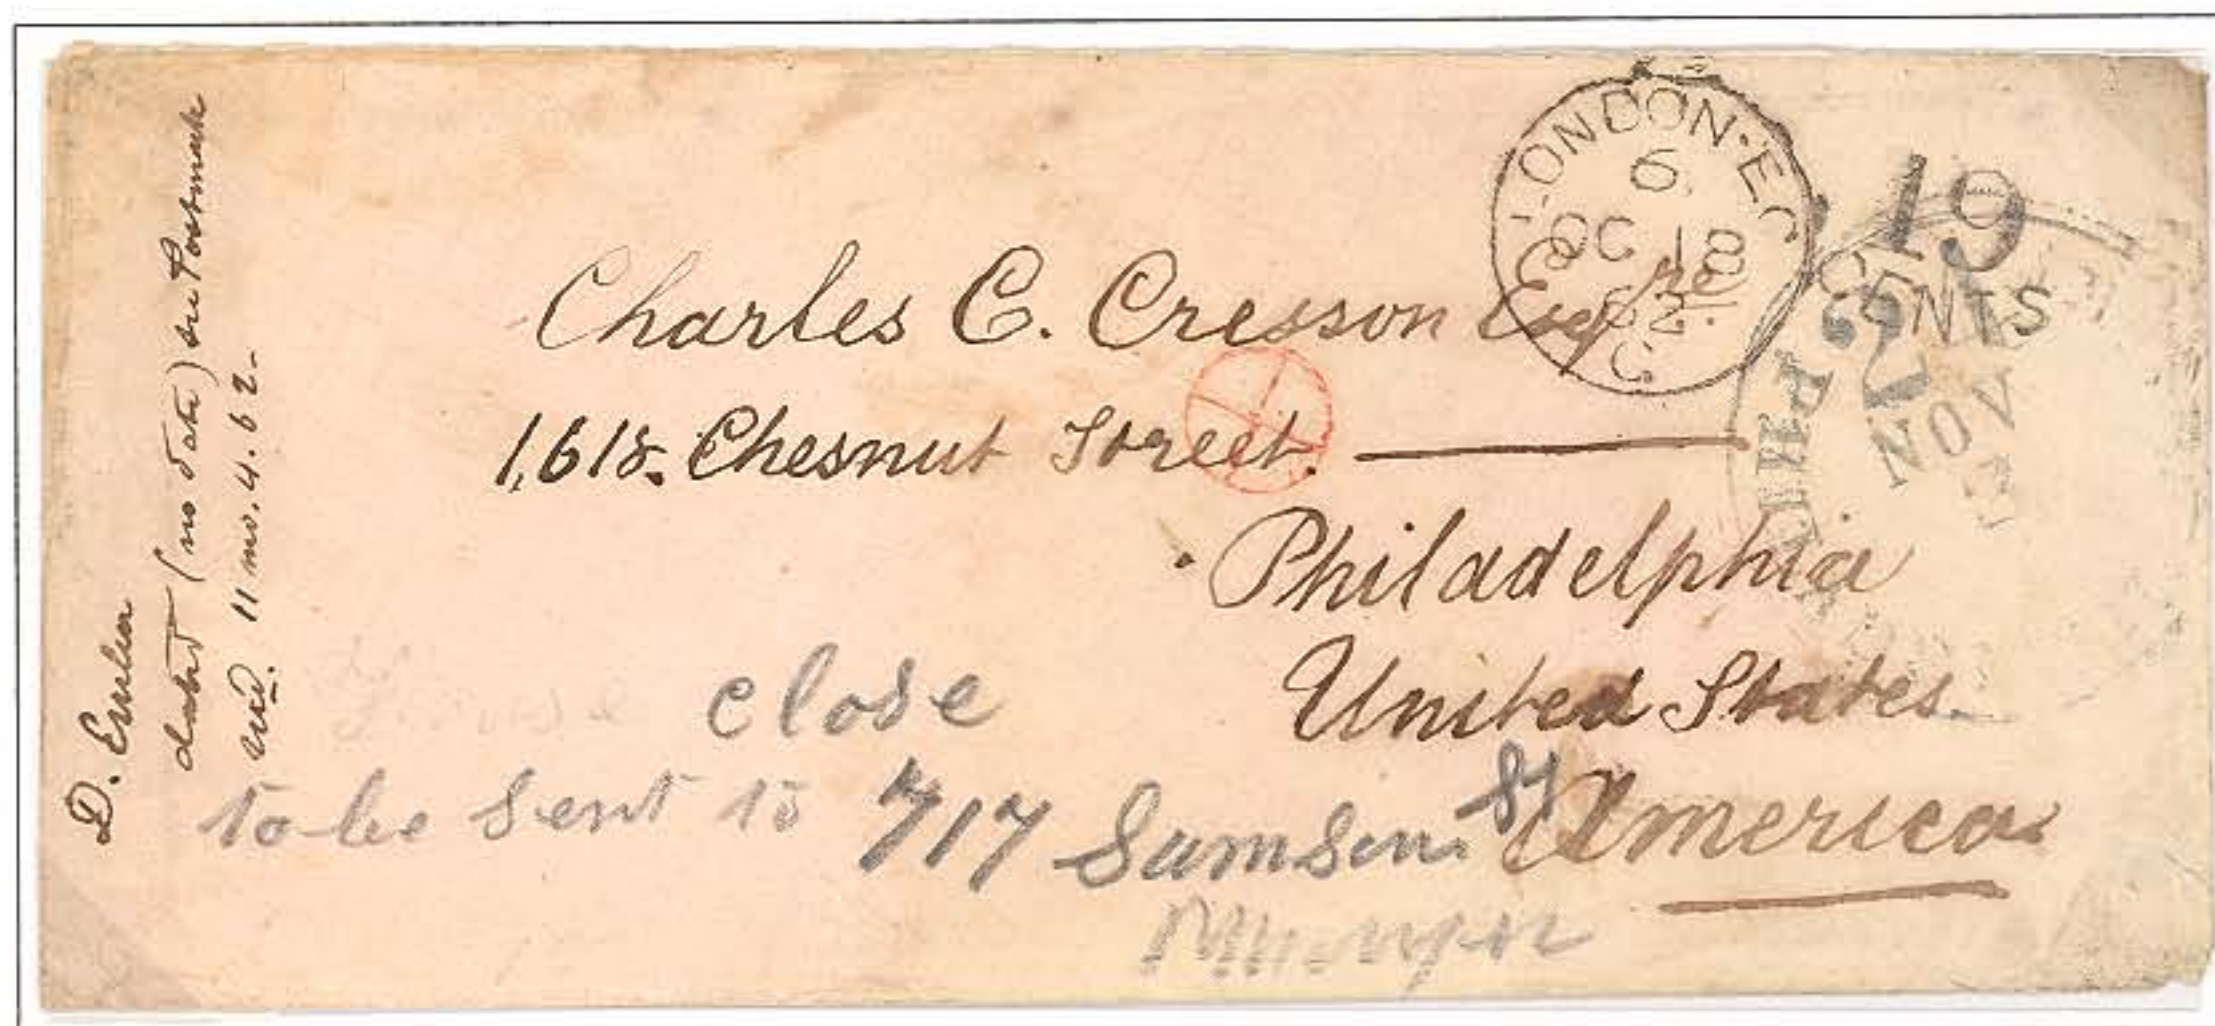 D. Emlen
dated (no date) see Postmark
recd. 11 mo. 4. 62.
LONDON·EC
6
OC 18
62
C
19
CENTS
2
NOV
PHI
Charles C. Cresson Esqre
1,618. Chesnut Street.
Philadelphia
United States
America
close
to be sent to 717 Samson St